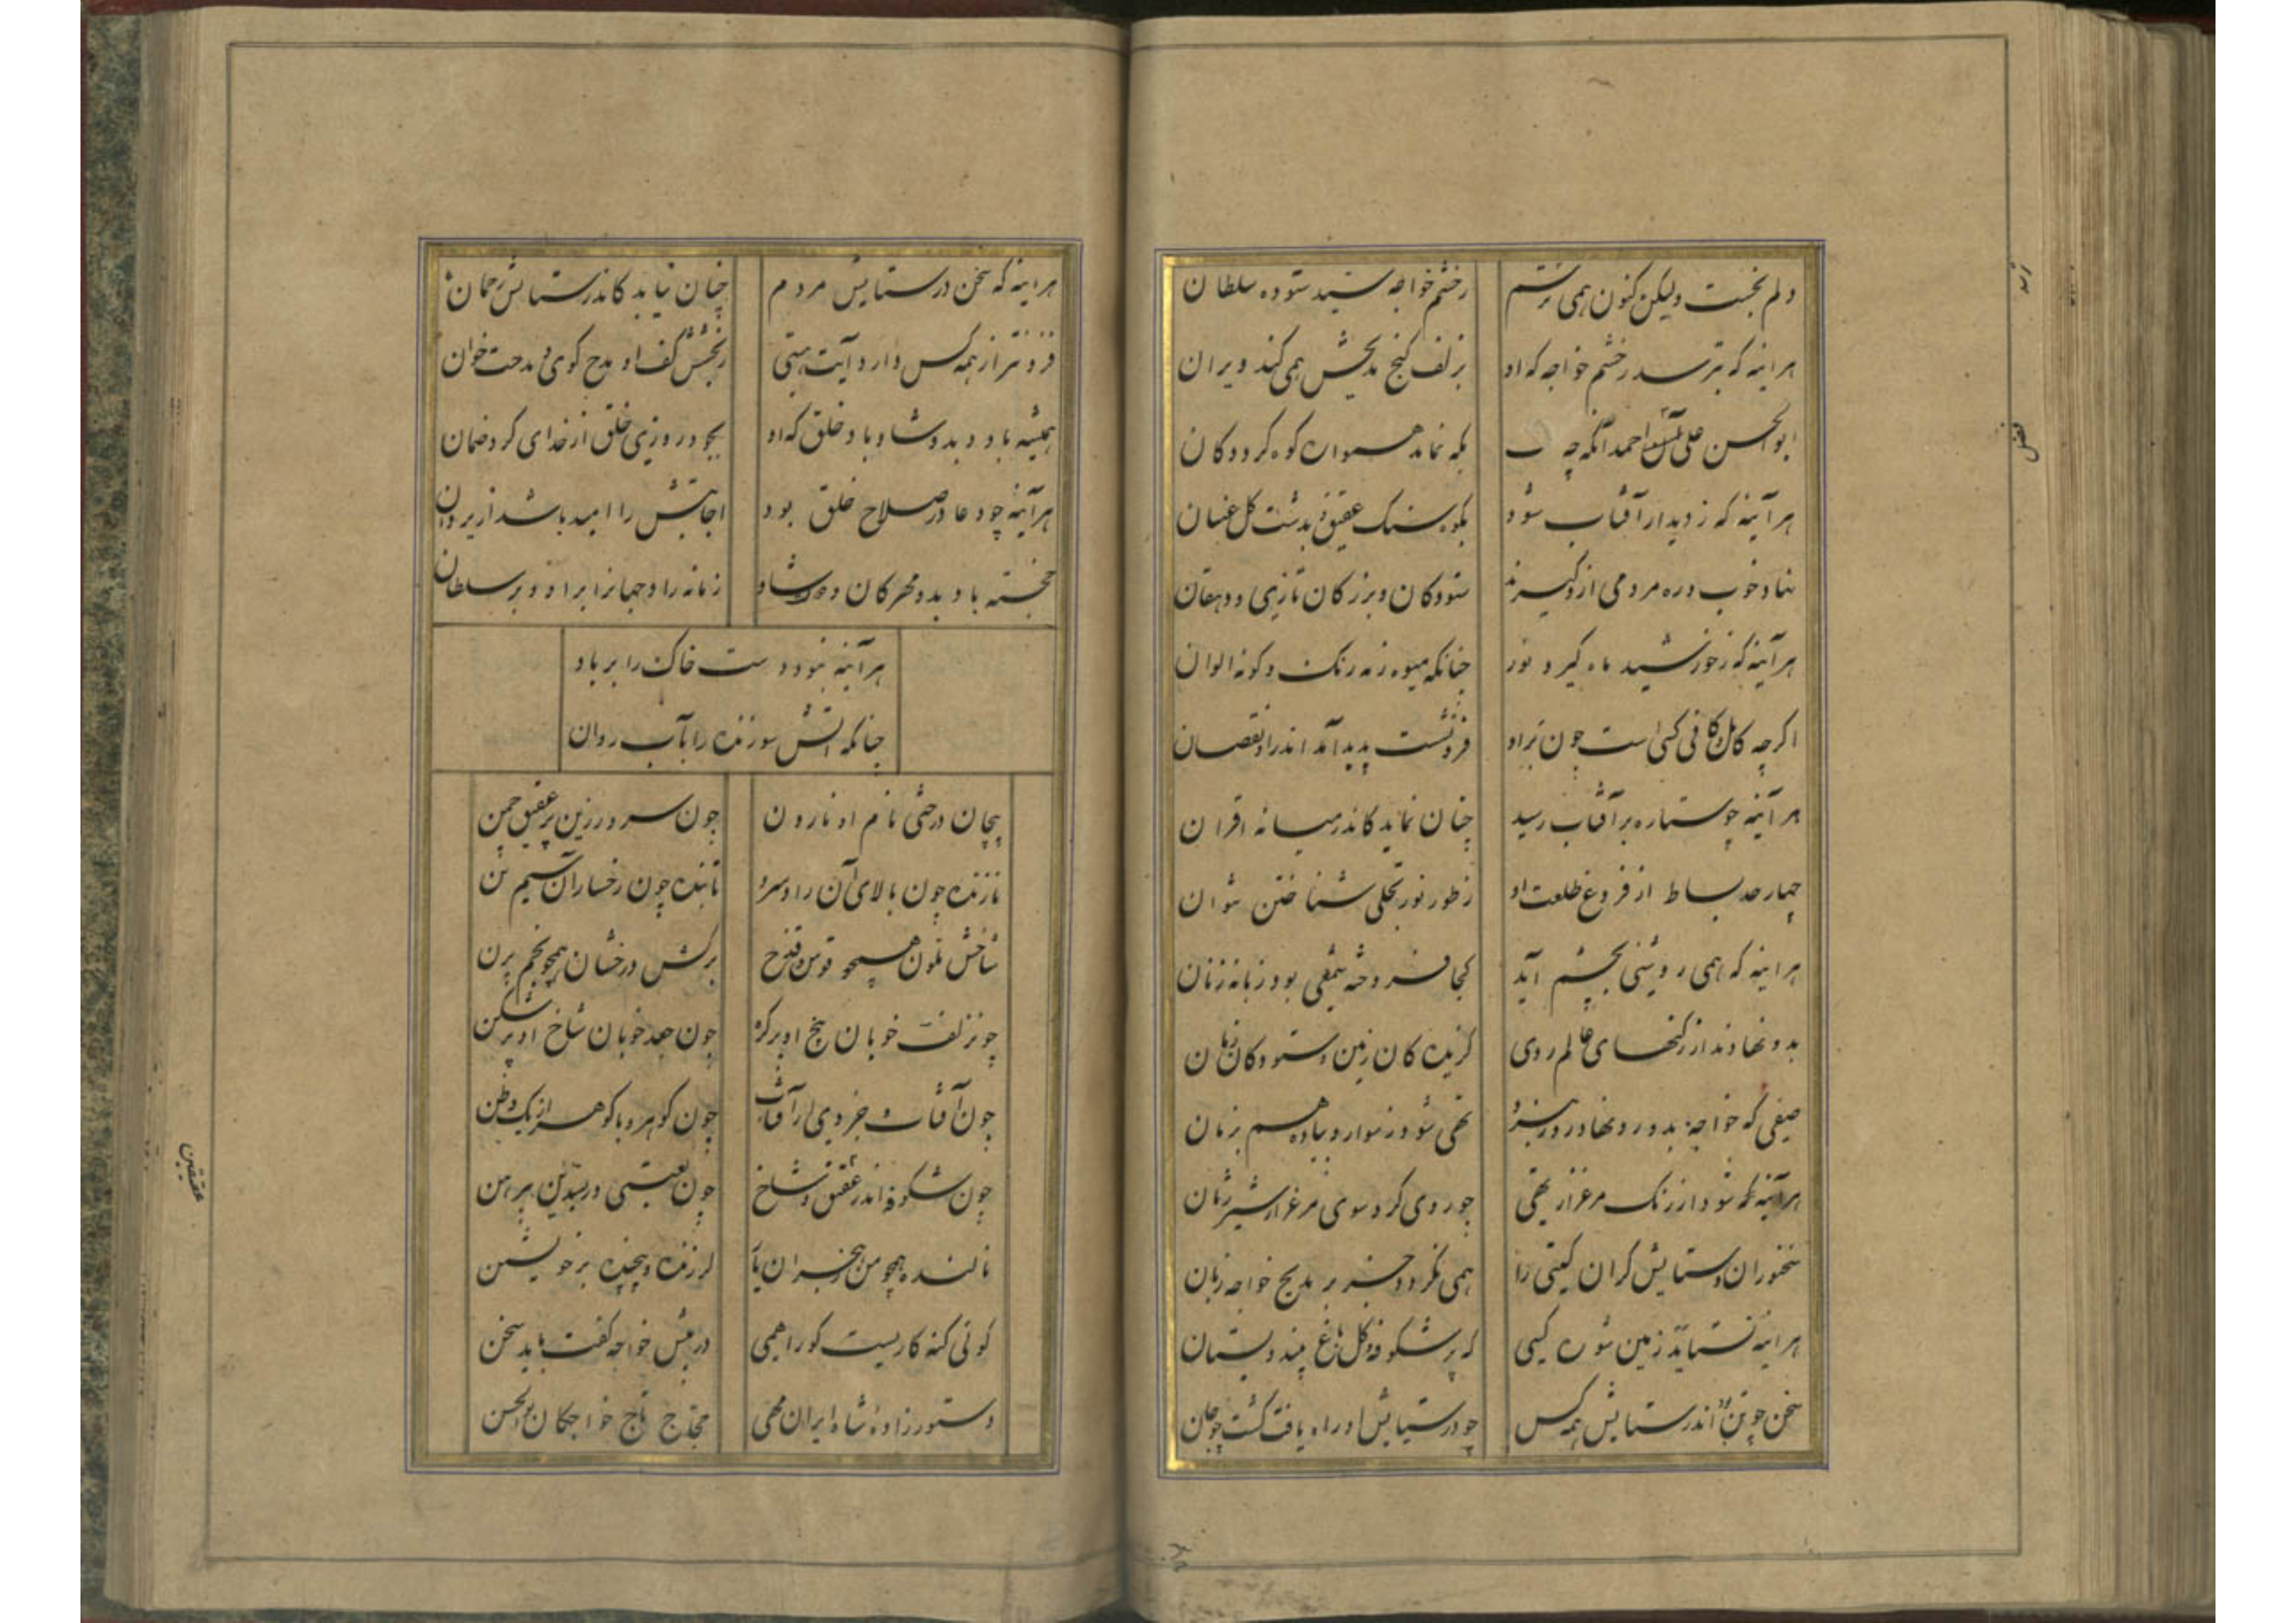 دلم نجست ولیکن کنون همی ترسم
زخشم خواجه سید ستوده سلطان
هراینه که بترسد زخشم خواجه که او
بزلف کنج مدیحش همی کند ویران
ابوالحسن علی احمد انکه چه
بکه نماند همواره کوه کردد کان
هرآینه که زدیدار آفتاب شود
بکوه سنک عقیق بدشت کل
نهاد خوب و ره مردمی ازو کیرند
ستودکان و بزرکان تازی و دهقان
هرآینه که زخورشید ماه کیرد نور
چنانکه میوه زمه رنک و کونه الوان
اکرچه کامل کافی کسی است چون براو
فرونشست پدید آمد اندراو نقصان
هرآینه چو ستاره برآفتاب رسید
چنان نماید کاندر میانه اقران
چهار حد بساط از فروغ طلعت او
زطور نور تجلی شناختن توان
هراینه که همی روشنی بچشم آید
کجا فروخته شمعی بود زبانه زنان
بدو نهادند از کنجهای عالم روی
کزیده کان زمین و ستودکان زمان
صفی که خواجه بدو رو نهاد روز نبرد
تهی شود زسوار و پیاده هم بزمان
هرآینه که شود از رنک مرغزار تهی
چو روی کرد سوی مرغزار شیر ژیان
سخنوران و ستایش کران کیتی را
همی نکردد جز بر مدیح خواجه زبان
هراینه نستاید زمین شوره کسی
که پر شکوفه و کل باغ بیند و بستان
سخن چو تن اندر ستایش همه کس
چو در ستایش او راه یافت کشت چو جان
هراینه که سخن درستایش مردم
چنان نیاید کاندر ستایش رحمان
فزونتر از همه کس دارد آیت هستی
زبخشش کف او مدح کوی و مدحت خوان
همیشه باد و بدو شاد باد خلق که او
بجود روزی خلق از خدای کرد ضمان
هرآینه چو دعا در صلاح خلق بود
اجابتش را امید باشد از یزدان
خجسته باد بدو مهرکان و شاد
زمانه را و جهانرا براو و بر سلطان
هرآینه نبود دست خاک را بر باد
چنانکه آتش سوزنده را بآب روان
پیچان درختی نام او نارون
چون سرو زرین پر عقیق چمن
نازنده چون بالای آن راد سرو
تابنده چون رخسار آن سیم تن
شاخش ملون همچو قوس قزح
برکش درخشان همچو نجم پرن
چونزلف خوبان بیخ او پر کره
چون جعد خوبان شاخ او پر شکن
چون آفتاب و جزوی از آفتاب
چون کوهر و با کوهر از یک وطن
چون شکوفه اندر عقیق و شاخ
چون لعبتی در بسدین پیرهن
نالنده همچو من
لرزنده و پیچنده بر خویشتن
کوئی کنه کاریست کو را همی
در پیش خواجه کفت باید سخن
دستور زاده شاه ایران
محتاج تاج خواجکان بوالحسن